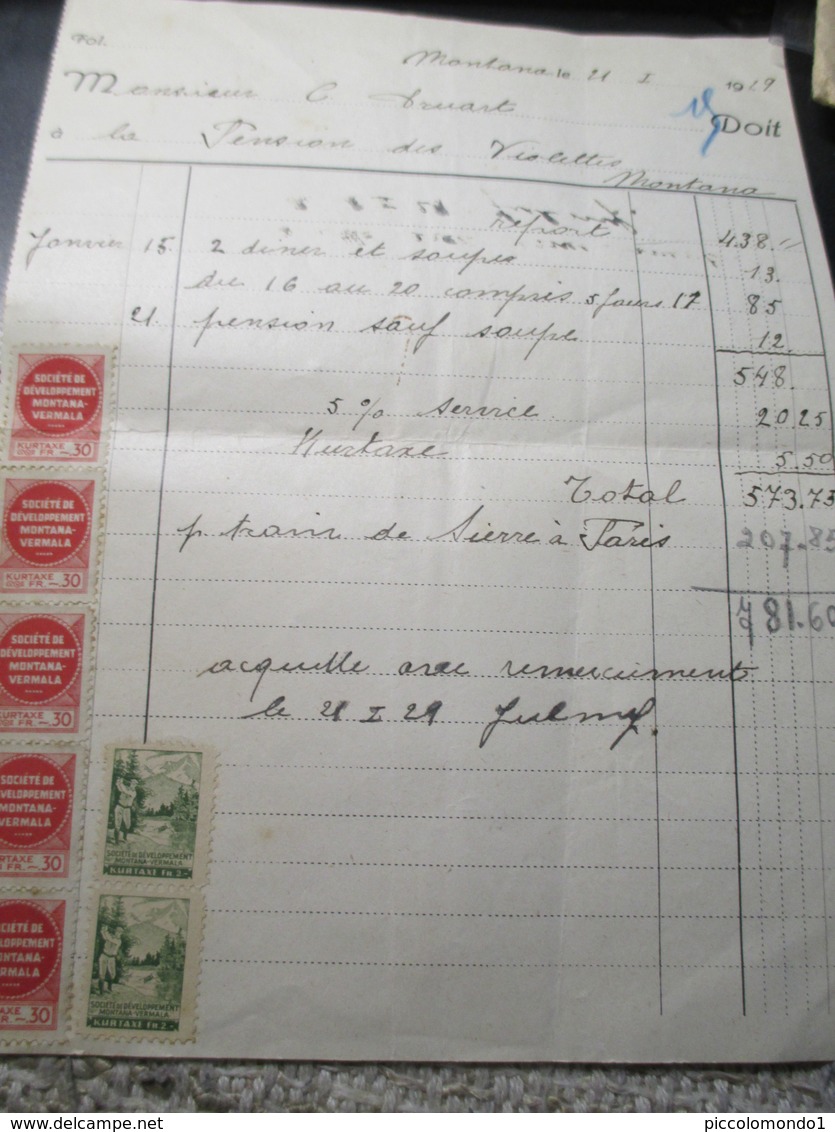 Fol.
Montana le 21 I 1929
Monsieur C Druart
Doit
à la Pension des Violettes
Montana
report 438.
Janvier 15. 2 diner et soupe 13.
du 16 au 20 compris 5 jours 17 85
21. pension sauf soupe 12.
548.
5% service 20 25
Kurtaxe 5.50
Total 573.75
p train de Sierre à Paris 207.85
781.60
acquitté avec remerciement
le 21 I 29
SOCIÉTÉ DE
DÉVELOPPEMENT
MONTANA-
VERMALA
KURTAXE FR -.30
SOCIÉTÉ DE
DÉVELOPPEMENT
MONTANA-
VERMALA
KURTAXE FR -.30
SOCIÉTÉ DE
DÉVELOPPEMENT
MONTANA-
VERMALA
KURTAXE FR -.30
SOCIÉTÉ DE
VELOPPEMENT
MONTANA-
VERMALA
KURTAXE FR -.30
SOCIÉTÉ DE
ELOPPEMENT
MONTANA-
RMALA
TAXE FR -.30
SOCIÉTÉ DE DÉVELOPPEMENT
MONTANA-VERMALA
KURTAXE Fr. 2.-
SOCIÉTÉ DE DÉVELOPPEMENT
MONTANA-VERMALA
KURTAXE Fr. 2.-
piccolomondo1